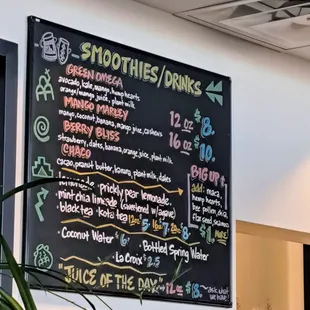 SMOOTHIES/DRINKS
GREEN OMEGA
avocado, kale, mango, hemp hearts
orange/mango juice, plant milk
MANGO MARLEY
mango, coconut, banana, mango juice, cashews
BERRY BLISS
strawberry, dates, banana, orange juice, plant milk
CHACO
cacao, peanut butter, banana, plant milk, dates
12 oz $8.
16 oz 10.
BIG UP
add: maca,
hemp
hearts,
pea
protein, chia
flax seed
$1
more
lemonade prickly pear lemonade
mint chia limeade (sweetened w/agave)
black tea kola tea 12oz 5. 16oz 8.
Coconut Water $6
Bottled Spring
Water
La Croix $2.5
"JUICE OF THE DAY"
12oz $
16oz $13.
ask what
we have!